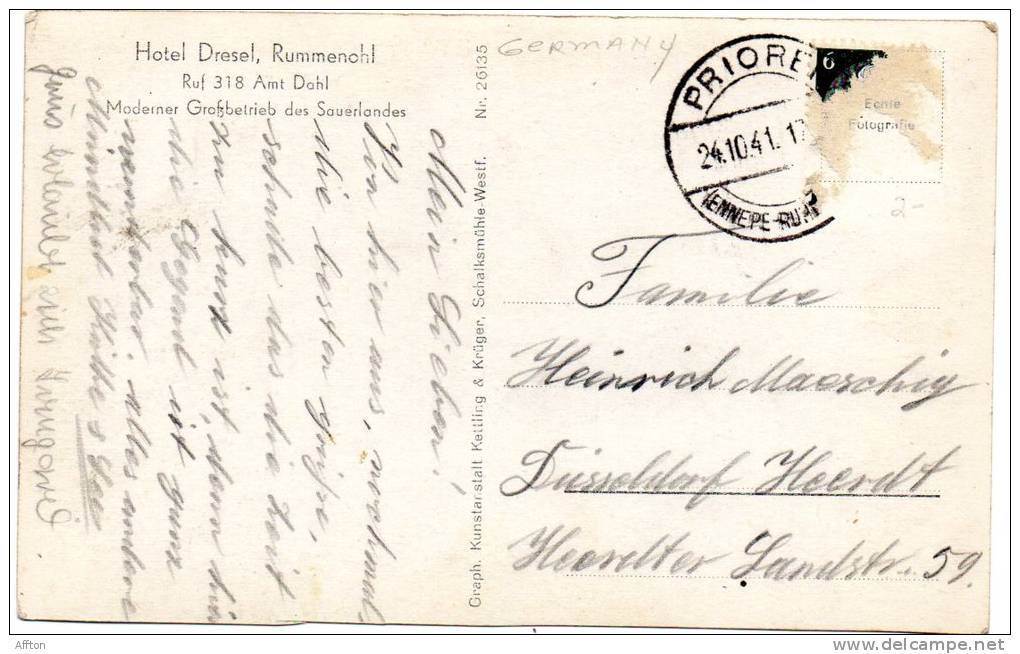 Hotel Dresel, Rummenohl
Ruf 318 Amt Dahl
Moderner Großbetrieb des Sauerlandes
GERMANY
PRIOREI
24.10.41. 17
(ENNEPE-RUHR
6
Echte
Fotografie
2-
Mein Lieben!
Von hier aus, nochmals
die besten Grüße,
schade das die Zeit
zu kurz ist, denn hier
die Gegend ist ganz
wunderbar. Alles andere
Mündlich
Graph. Kunstanstalt Kettling & Krüger, Schalksmühle-Westf. Nr. 26135
Familie
Heinrich Maeschig
Düsseldorf Heerdt
Heerdter Landstr. 59.
Affton
delcampe.net